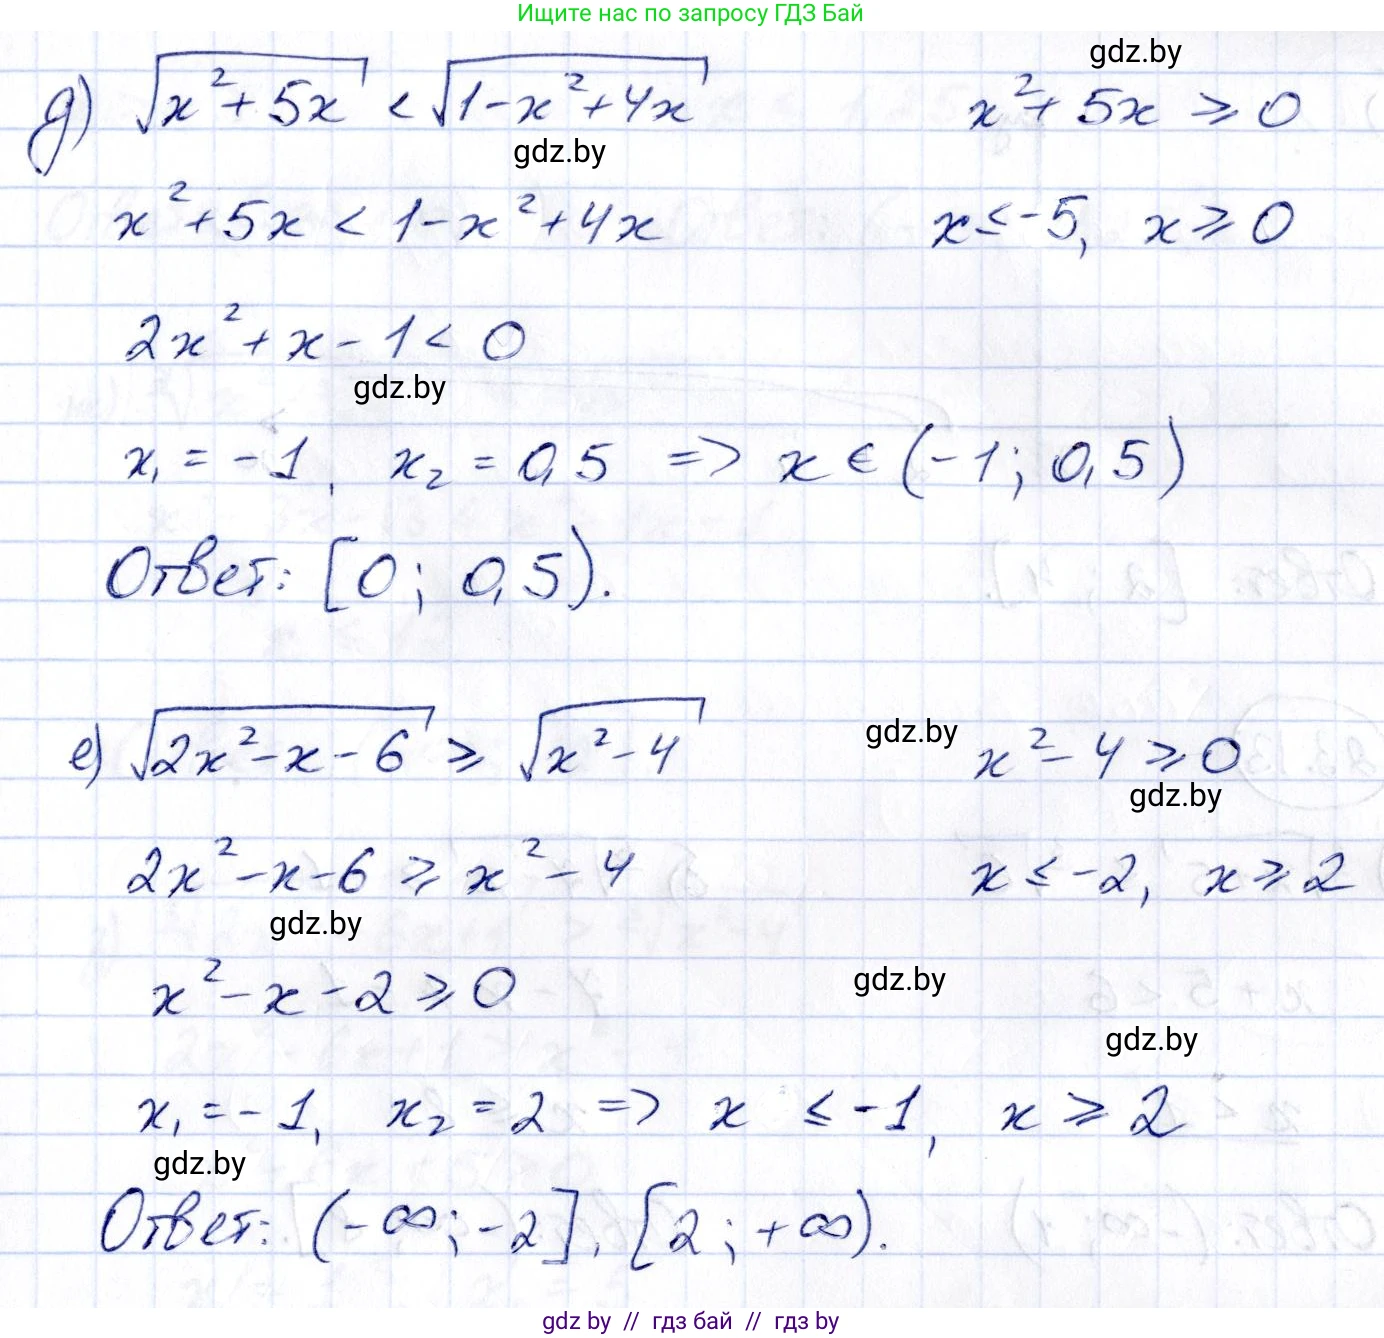 Ищите нас по запросу ГДЗ Бай
gdz.by
д) √(x²+5x) < √(1-x²+4x)    x²+5x ≥ 0
gdz.by
x²+5x < 1-x²+4x    x≤-5, x≥0
2x²+x-1< 0
gdz.by
x₁ = -1, x₂ = 0,5 => x ∈ (-1; 0,5)
Ответ: [0; 0,5).
е) √(2x²-x-6) ≥ √(x²-4)    gdz.by    x²-4≥0
gdz.by
2x²-x-6 ≥ x²-4    x≤-2, x≥2
gdz.by
x²-x-2≥0    gdz.by
gdz.by
x₁=-1, x₂=2 => x ≤-1, x≥2
gdz.by
Ответ: (-∞; -2], [2; +∞).
gdz by // гдз бай // гдз by